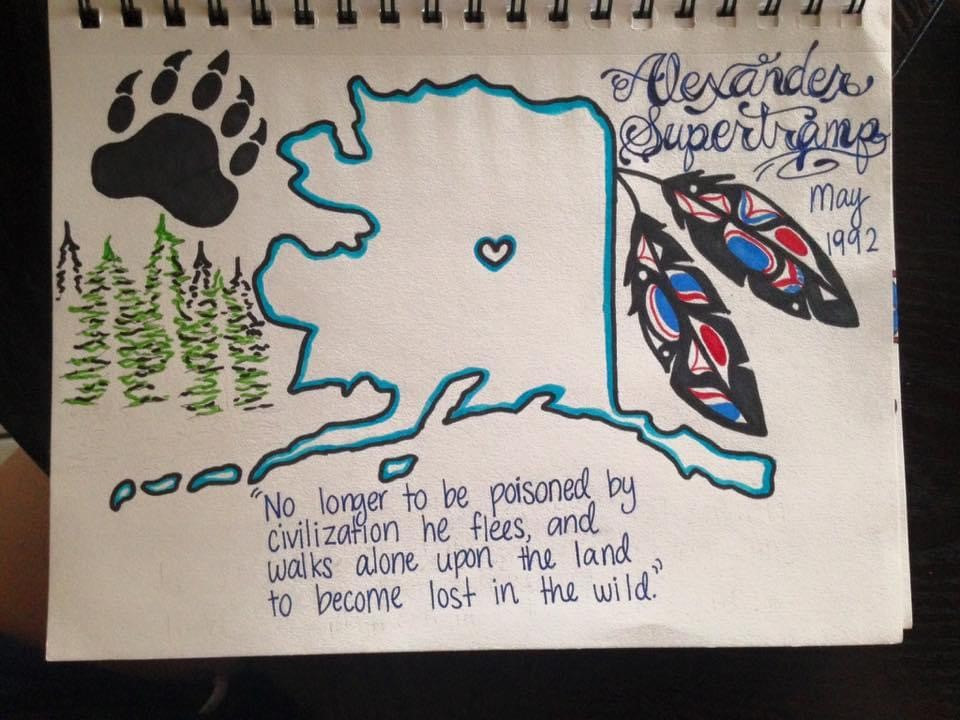 Alexander
Supertramp
May
1992
"No longer to be poisoned by
civilization he flees, and
walks alone upon the land
to become lost in the wild."